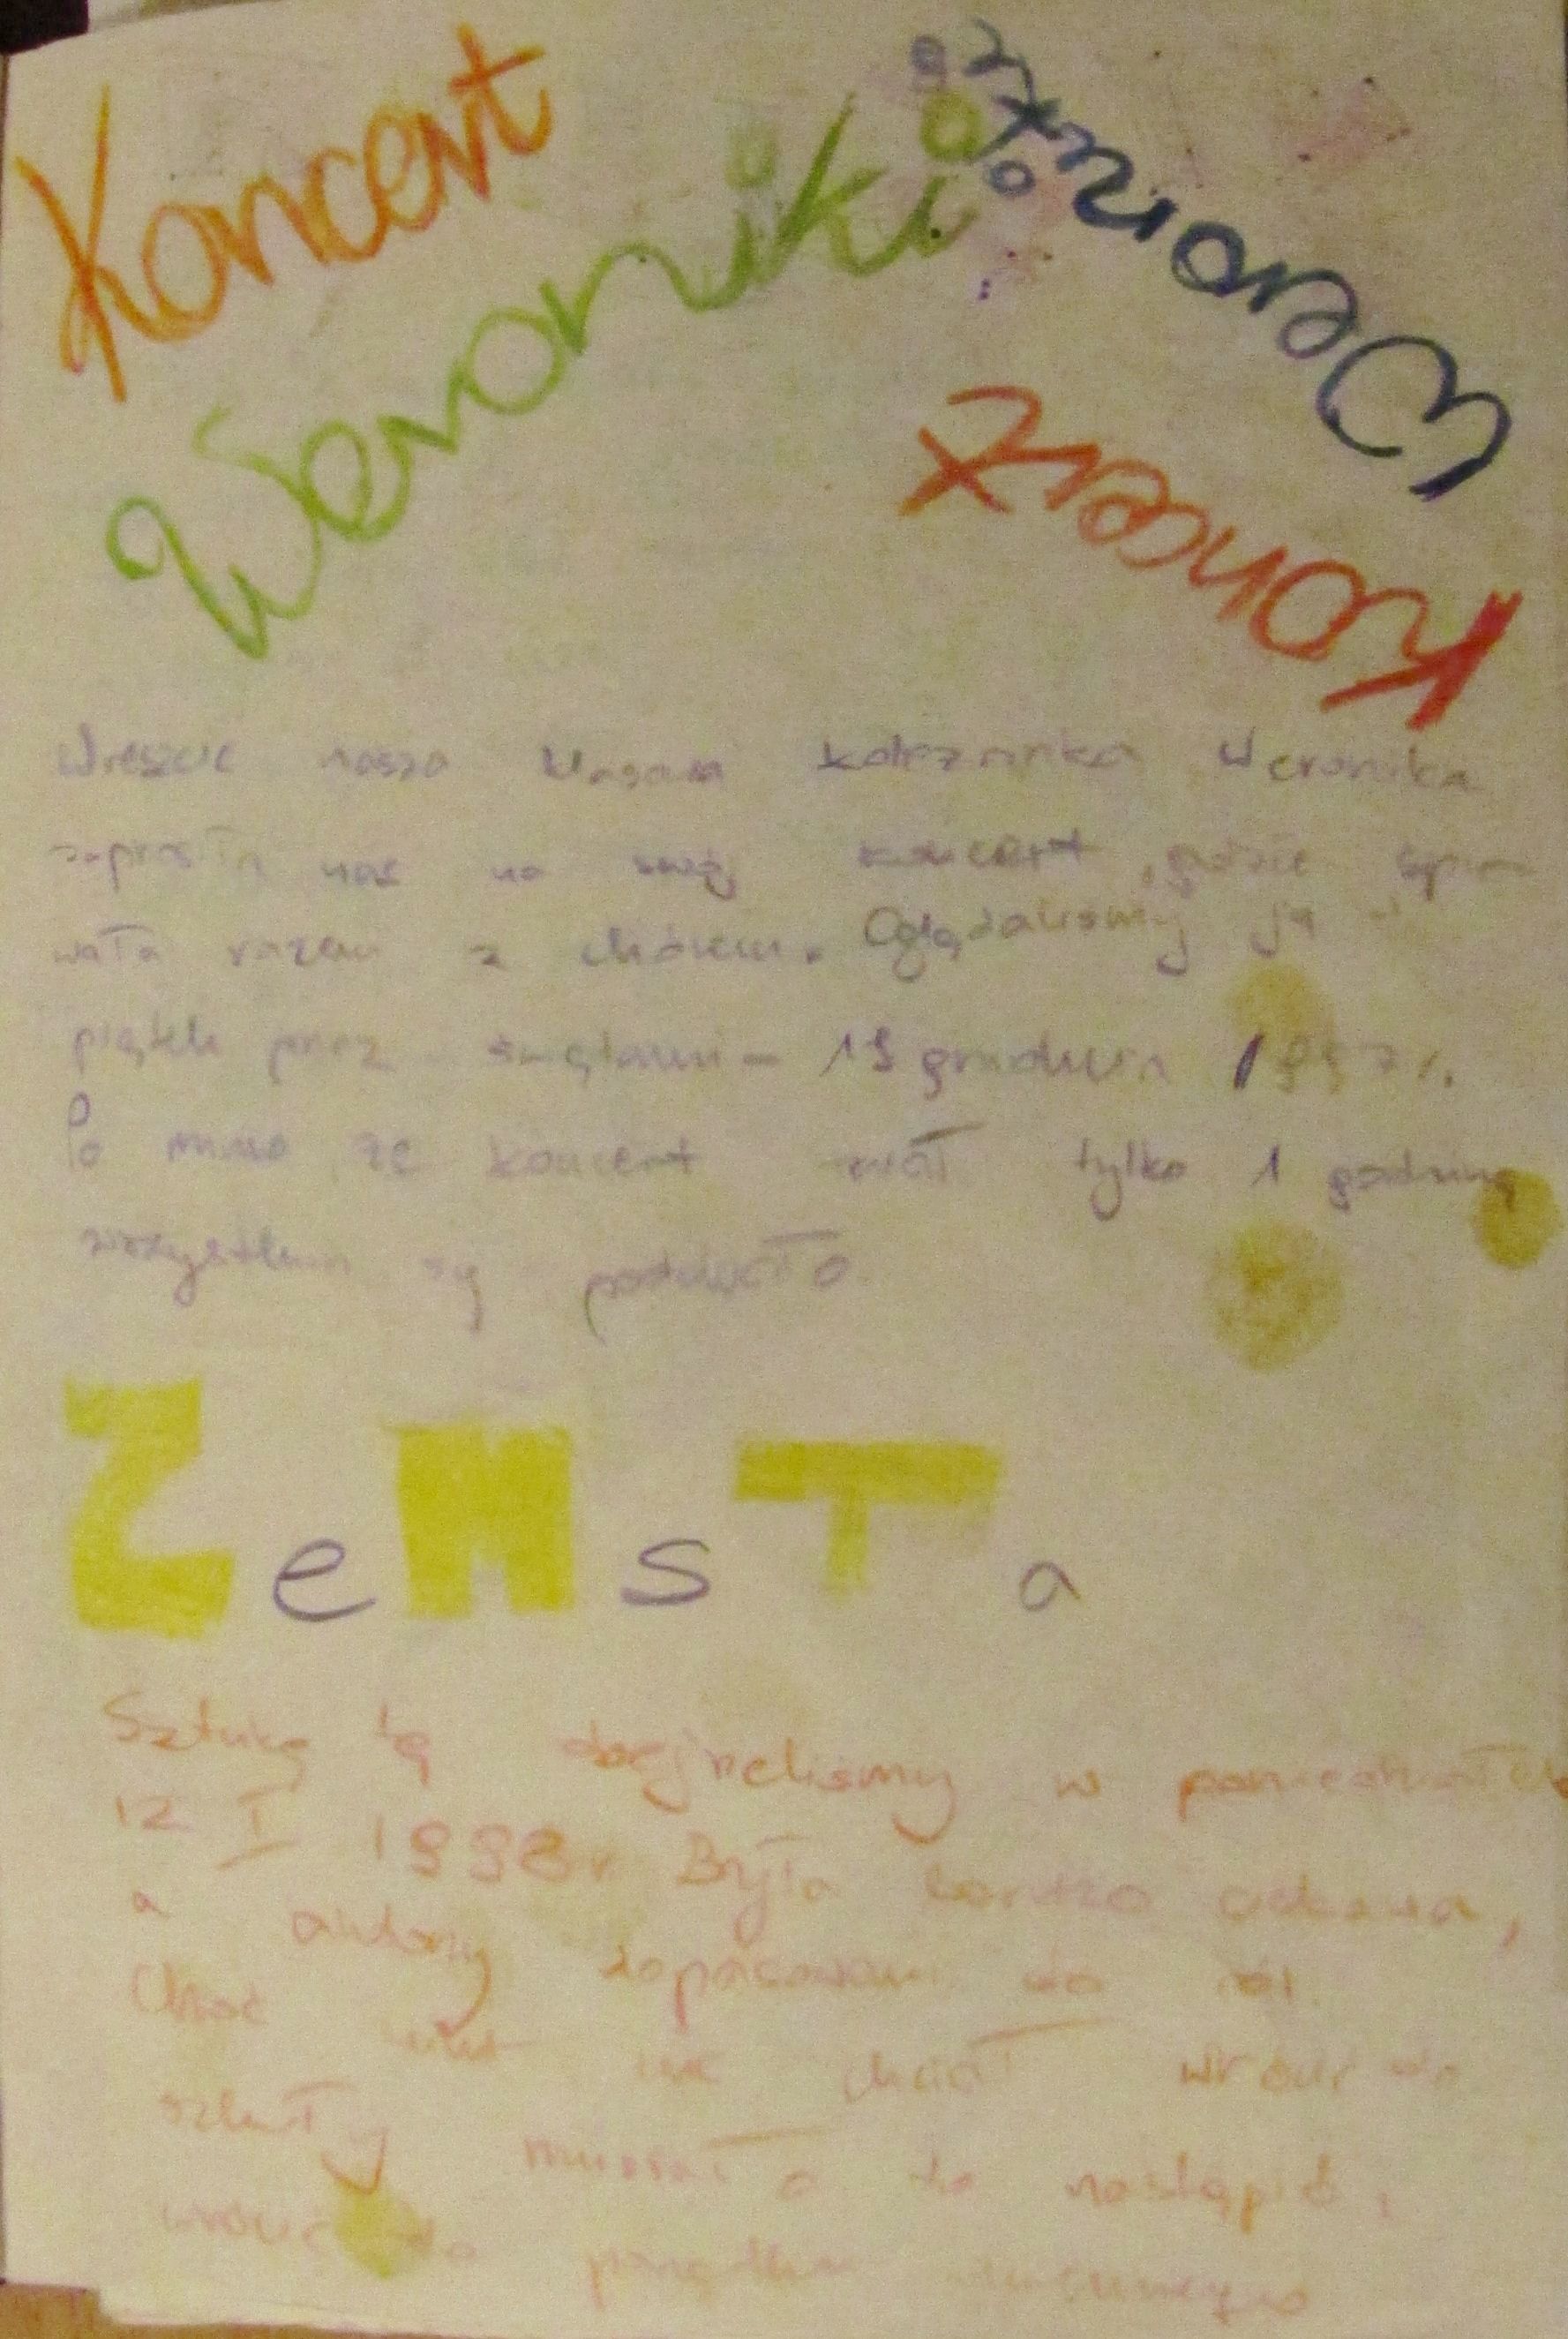 Koncert
Weroniki
Weroniki
Koncert
Wreszcie nasza koleżanka Weronika
zaprosiła nas na swój koncert, gdzie śpie-
wała razem z chórem. Oglądaliśmy ją w
piątek przez świętami - 19 grudnia 1997 r.
Po mimo, że koncert trwał tylko 1 godzinę
wszystkim się podobało.
ZeMsTa
Sztukę tą obejrzeliśmy w poniedziałek
12 I 1998 r Była bardzo ciekawa,
a aktorzy dopasowani do ról.
Choć nikt nie chciał wrócić do
szkoły musiało to nastąpić,
wrócić do